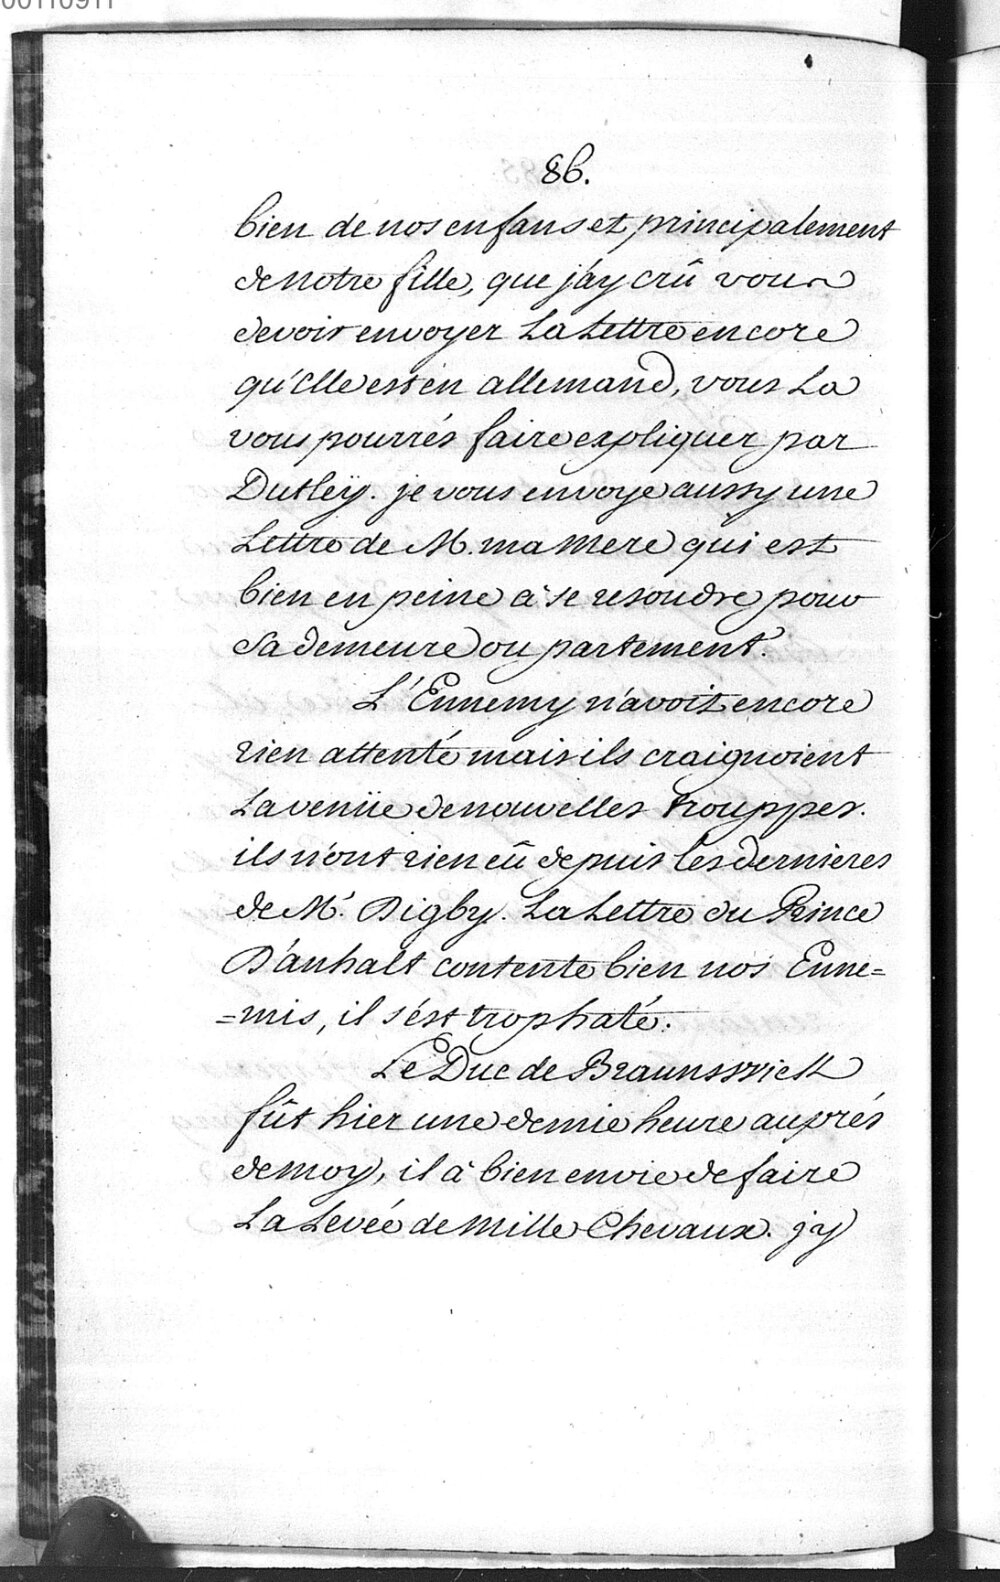 00110911
86.
bien de nos enfans et principalement
de notre fille, que j'ay crû vous
devoir envoyer La Lettre encore
qu'elle est en allemand, vous La
vous pourrés faire expliquer par
Dutleÿ. je vous envoye aussy une
Lettre de M. ma Mere qui est
bien en peine à se resoudre pour
Sa demeure ou partement.
L'Ennemy n'avoit encore
rien attenté mais ils craignoient
La venüe de nouvelles trouppes.
ils n'ont rien eû depuis les dernieres
de Mr. Digby. La Lettre du Prince
D'anhalt contente bien nos Enne=
=mis, il s'est trop haté.
Le Duc de Braunsswick
fût hier une demie heure auprés
de moy, il à bien envie de faire
La Levée de Mille Chevaux. j'y